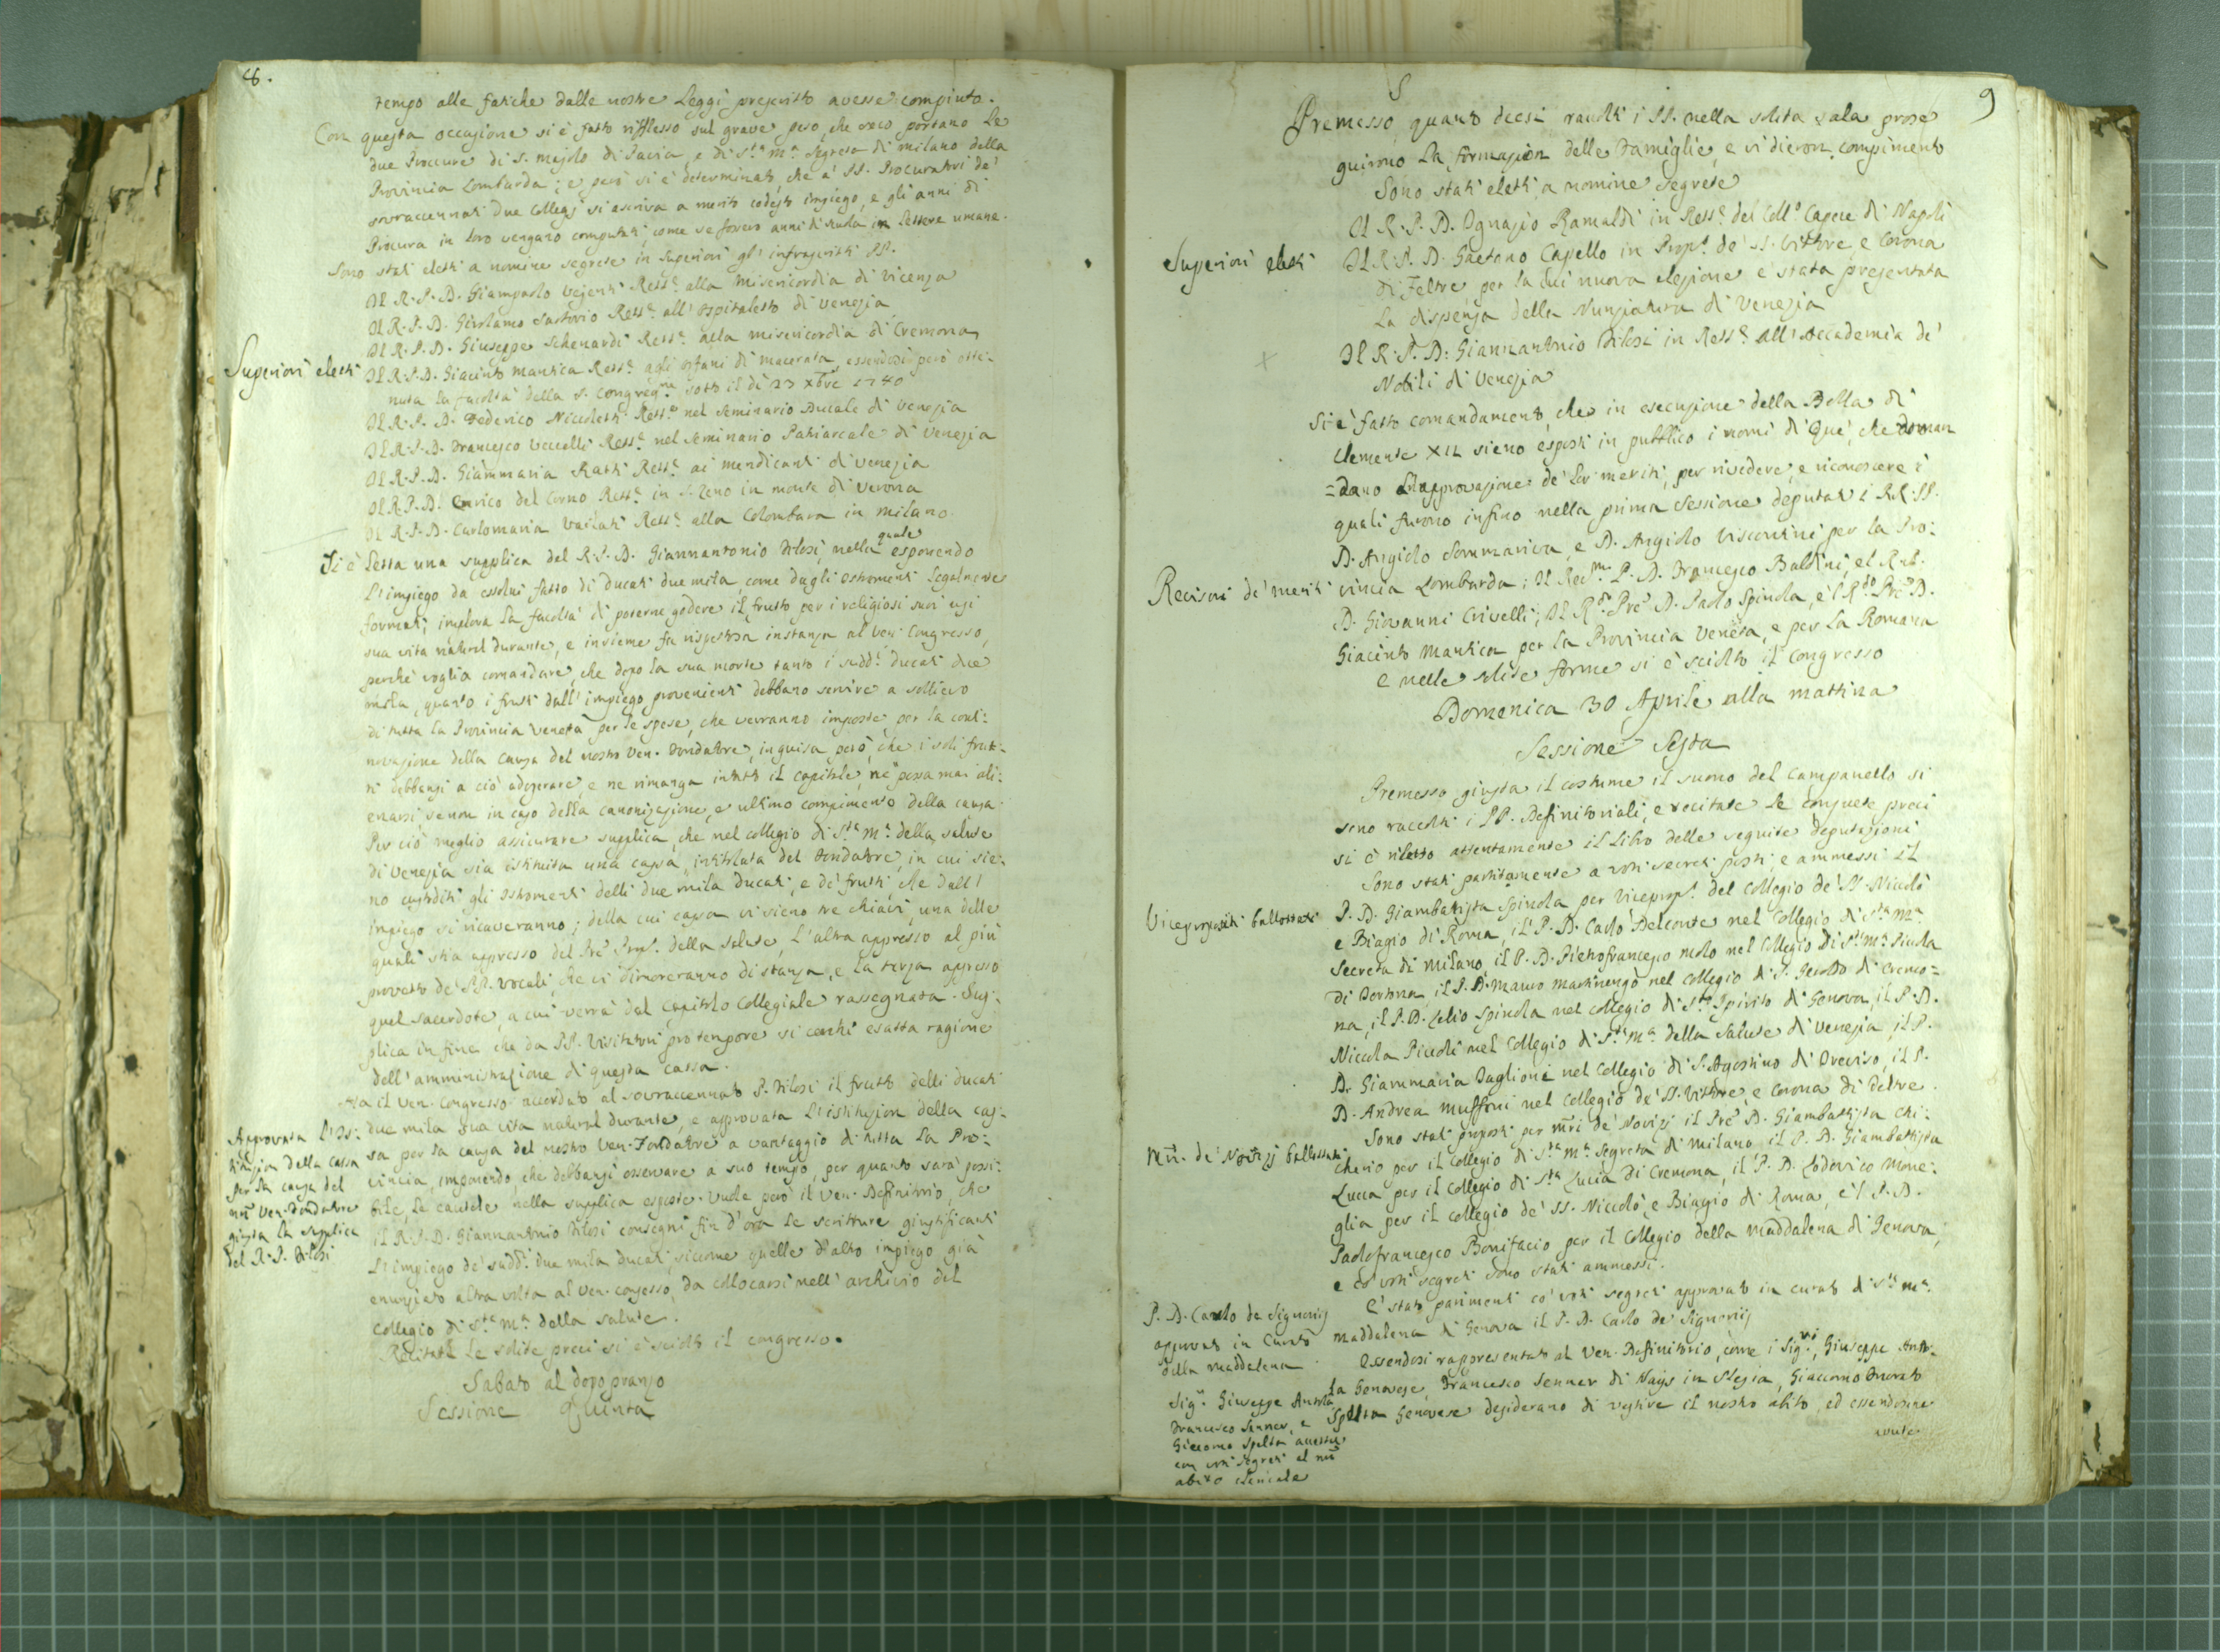 8.
tempo alle fatiche dalle nostre Leggi prescritto avesse compiuto.
Con questa occasione si è fatto riflesso sul grave peso, che seco portano le
due Procure di S. Majolo di Pavia, e di S.ta M.a Segreta di Milano della
Provincia Lombarda; e però si è determinato, che a' PP. Procuratori de'
sovraccennati due Collegj si ascriva a merito codesto impiego, e gli anni di
Procura in loro vengano computati, come se fossero anni di scuola in Lettere umane.
Sono stati eletti a nomine segrete in Superiori gl' infrascritti PP.
Superiori eletti
Il R. P. D. Giampaolo Vejenti Rett.e alla Misericordia di Vicenza
Il R. P. D. Girolamo Sartorio Rett.e all' Ospitaletto di Venezia
Il R. P. D. Giuseppe Schenardi Rett.e alla misericordia di Cremona
Il R. P. D. Giacinto Mantica Rett.e agli Orfani di Macerata, essendosi però otte:
nuta la facoltà della S. Congreg.ne sotto il dì 23 Xbre 1740
Il R. P. D. Federico Nicoletti Rett.e nel Seminario Ducale di Venezia
Il R. P. D. Francesco Vecelli Rett.e nel Seminario Patriarcale di Venezia
Il R. P. D. Giammaria Ratti Rett.e ai mendicanti di Venezia
Il R. P. D. Enrico del Corno Rett.e in S. Zeno in monte di Verona
Il R. P. D. Carlomaria Vailati Rett.e alla Colombara in Milano.
Si è Letta una supplica del R. P. D. Giannantonio Filosi, nella quale esponendo
L'impiego da essolui fatto di Ducati due mila, come dagli Istromenti legalmente
formati; implora la facoltà di poterne godere il frutto per i religiosi suoi usi
sua vita natural durante, e insieme fa rispettosa instanza al Ven. Congresso,
perchè voglia comandare, che dopo la sua morte tanto i sudd.i Ducati due
mila, quanto i frutti dall' impiego provenienti debbano servire a sollievo
di tutta la Provincia Veneta per le spese, che verranno imposte per la conti:
novazione della Causa del nostro Ven. Fondatore, in guisa però, che i soli frut:
ti debbansi a ciò adoperare, e ne rimanga intatto il capitale, nè possa mai ali:
enarsi se non in caso della canonizazione, e ultimo compimento della causa.
Per ciò meglio assicurare supplica, che nel collegio di S.ta M.a della salute
di Venezia sia istituita una cassa, intitolata del Fondatore, in cui sie:
no custoditi gli Istromenti delli due mila Ducati, e de' frutti, che dall'
impiego si ricaveranno; della cui cassa vi sieno tre chiavi, una delle
quali stia appresso del Pre Prep.to della Salute, L'altra appresso al più
provetto de' PP. Vocali, che ivi dimoreranno di stanza, e la terza appresso
quel sacerdote, a cui verrà dal Capitolo Collegiale rassegnata. Sup:
plica in fine che da PP. Visitatori pro tempore si cerchi esatta ragione
dell' amministrazione di questa cassa.
Ha il Ven. Congresso accordato al sovraccennato P. Filosi il frutto delli ducati
due mila sua vita natural durante, e approvata L'istituzion della cas:
sa per la causa del nostro Ven. Fondatore a vantaggio di tutta la Pro:
vincia, imponendo che debbansi osservare a suo tempo, per quanto sarà possi:
bile, le cautele nella supplica esposte. Vuole però il Ven. Definitorio, che
il R. P. D. Giannantonio Filosi consegni fin d'ora le scritture giustificanti
L'impiego de' sudd.i due mila ducati, siccome quelle d'altro impiego già
enunziato altra volta al Ven. congresso, da collocarsi nell' archivio del
Collegio di S.ta M.a della salute.
Approvata l'Is:
tituzion della Cassa
per la causa del
nro Ven. Fondatore
giusta la supplica
del R. P. Filosi
Recitate le solite preci si è sciolto il congresso.
Sabato al dopopranzo
Sessione Quinta
9
Premesso, quanto deesi, raccolti i PP. nella solita sala prose
guirono la formazion delle Famiglie, e vi dieron compimento
Sono stati eletti a nomine segrete
Superiori eletti
Il R. P. D. Ignazio Ramaldi in Rett.e del Coll.o Capece di Napoli
Il R. P. D. Gaetano Capello in Prep.to de' SS. Vittore e Corona
di Feltre, per la cui nuova elezione è stata presentata
la dispensa della Nunziatura di Venezia
Il R. P. D. Giannantonio Filosi in Rett.e all' Accademia de'
Nobili di Venezia
Si è fatto comandamento, che in esecuzione della Bolla di
Clemente XII sieno esposti in pubblico i nomi di que', che doman
=dano l'approvazione de' lor meriti, per rivedere, e riconoscere i
quali furono infino nella prima Sessione deputati i RR. PP.
D. Angiolo Sommariva, e D. Angiolo Viscontini per la Pro:
Revisori de' meriti
vincia Lombarda; Il Rev.mo P. D. Francesco Baldini, el R.do
D. Giovanni Crivelli; Il R.do Pre D. Paolo Spinola, e'l R.do Pre D.
Giacinto Mantica per la Provincia Veneta, e per la Romana
e nelle solite forme si è sciolto il Congresso
Domenica 30 Aprile alla mattina
Sessione Sesta
Premesso giusta il costume il suono del Campanello si
sono raccolti i PP. Definitoriali, e recitate le consuete preci
si è riletto attentamente il Libro delle seguite deputazioni
Sono stati partitamente a voti secreti posti, e ammessi il
Viceprepositi ballottati
P. D. Giambatista Spinola per Viceprep.to del Collegio de' SS. Niccolò
e Biagio di Roma, il P. D. Carlo Delconte nel Collegio di S.ta M.a
Secreta di Milano, il P. D. Pietrofrancesco Molo nel Collegio di S.ta M.a Picola
di Tortona, il P. D. Mauro Martinengo nel Collegio di S. Geroldo di Cremo=
na, il P. D. Lelio Spinola nel collegio di S.to Spirito di Genova, il P. D.
Niccola Piccoli nel Collegio di S.ta M.a della Salute di Venezia, il P.
D. Giammaria Taglioni nel Collegio di S. Agostino di Treviso, il P.
D. Andrea Muffoni nel Collegio de' SS. Vittore, e Corona di Feltre.
Mri. de' Novizj ballottati
Sono stati proposti per mri de' Novizj il Pre D. Giambattista Chi:
cherio per il Collegio di S.ta M.a Segreta di Milano, il P. D. Giambattista
Lucca per il Collegio di S.ta Lucia di Cremona, il P. D. Lodovico Mone:
glia per il Collegio de' SS. Niccolò, e Biagio di Roma, e'l P. D.
Paolofrancesco Bonifacio per il Collegio della Maddalena di Genova,
e co' voti segreti sono stati ammessi.
P. D. Carlo de Signorij
approvato in Curato
della Maddalena
E' stato parimenti co' voti segreti approvato in curato di S.ta M.a
Maddalena di Genova il P. D. Carlo de' Signorij
Essendosi rappresentato al Ven. Definitorio, come i Sig.ri Giuseppe Anto:
la Genovese, Francesco Senner di Nays in Slesia, Giacomo Onorato
Spelta Genovese desiderano di vestire il nostro abito, ed essendosene
Sig.ri Giuseppe Antola
Francesco Senner, e
Giacomo Spelta accettati
con voti segreti al nro
abito clericale
avute